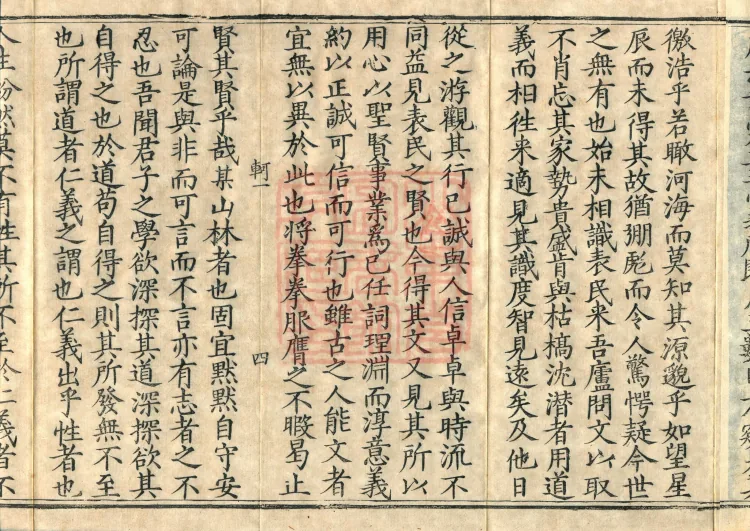 徼浩乎若瞰河海而莫知其源貌乎如望星
辰而未得其故猶弸彪而令人驚愕疑今世
之無有也始未相識表民来吾廬問文以取
不肖忘其家勢貴盛肯與枯槁沈潜者用道
義而相徃来適見其識度智見逺矣及他日
從之游觀其行已誠與人信卓卓與時流不
同益見表民之賢也今得其文又見其所以
用心以聖賢事業爲已任詞理淵而淳意義
約以正誠可信而可行也雖古之人能文者
宜無以異於此也将拳拳服膺之不暇曷止
軻一 四
賢其賢乎哉某山林者也固宜黙黙自守安
可論是與非而可言而不言亦有志者之不
忍也吾聞君子之學欲深探其道深探欲其
自得之也於道苟自得之則其所發無不至
也所謂道者仁義之謂也仁義出乎性者也
人生紛然莫不有性其所不至於仁義者不